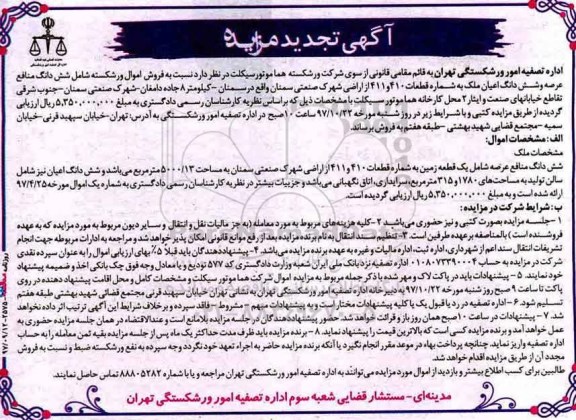 آگهی تجدید مزایده
اداره تصفیه امور ورشکستگی تهران به قائم مقامی قانونی از سوی شرکت ورشکسته هما موتورسیکلت در نظر دارد نسبت به فروش اموال ورشکسته شامل شش دانگ منافع
عرصه وشش دانگ اعیان ملک به شماره قطعات ۴۱۰ و ۴۱۱ از اراضی شهرک صنعتی سمنان واقع در سمنان -کیلومتر ۸ جاده دامغان -شهرک صنعتی سمنان -جنوب شرقی
تقاطع خیابانهای صنعت و ایثار ۲ محل کارخانه هما موتور سیکلت با مشخصات ذیل که براساس نظریه کارشناسان رسمی دادگستری به مبلغ ۵,۳۵۰,۰۰۰,۰۰۰ ریال ارزیابی
گردیده از طریق مزایده کتبی و با شرایط زیر در روز شنبه مورخه ۹۷/۱۰/۲۲ ساعت ۱۰ صبح در اداره تصفیه امور ورشکستگی به آدرس: تهران- خیابان سپهبد قرنی-خیابان
سمیه -مجتمع قضایی شهید بهشتی -طبقه هفتم به فروش برساند.
الف: مشخصات اموال:
مشخصات ملک
شش دانگ منافع عرصه شامل یک قطعه زمین به شماره قطعات ۴۱۰ و ۴۱۱ از اراضی شهرک صنعتی سمنان به مساحت ۵۰۰۰/۱۳ مترمربع می‌باشد و شش دانگ اعیان نیز شامل
سالن تولید به مساحت‌های ۱۷۸۰ و ۳۱۵ مترمربع، سرایداری، اتاق نگهبانی می‌باشد و جزییات بیشتر در نظریه کارشناسان رسمی دادگستری به شماره یک اموال مورخه ۹۷/۴/۲۵
ارائه شده است و به مبلغ ۵,۳۵۰,۰۰۰,۰۰۰ ریال ارزیابی گردیده است.
ب: شرایط شرکت در مزایده:
۱- جلسه مزایده بصورت کتبی و نیز حضوری می‌باشد ۲- کلیه هزینه‌های مربوط به مورد معامله (بجز مالیات نقل و انتقال و سایر دیون مربوط به مورد مزایده که به عهده
فروشنده است) بالمناصفه برعهده طرفین است ۳- تنظیم سند انتقال به نام برنده مزایده بعد از رفع موانع قانونی امکان پذیر خواهد شد و مراجعه به ادارات مربوطه جهت انجام
تشریفات انتقال سند اعم از شهرداری، اداره ثبت، اداره مالیات و غیره به عهده برنده مزایده می‌باشد. ۴- پیشنهاددهندگان باید قبلا ۵٪ بهای ارزیابی اموال را به عنوان سپرده نقدی
شرکت در مزایده به حساب ۰۱۰۸۰۷۳۳۹۰۰۰۴ اداره تصفیه نزد بانک ملی ایران شعبه وزارت دادگستری کد ۵۷۷ تودیع و یا معادل وجه فوق چک بانکی اخذ و ضمیمه پیشنهاد
خود نمایند. ۵- پیشنهادات باید در پاکت لاک و مهر شده با ذکر جمله مربوط به مزایده اموال شرکت هما موتور سیکلت و مشخصات کامل و محل اقامت پیشنهاد دهنده در روی
پاکت تا ساعت ۹ صبح روز شنبه مورخه ۹۷/۱۰/۲۲ به دبیرخانه اداره تصفیه امور ورشکستگی تهران به نشانی تهران خیابان سپهبد قرنی مجتمع قضائی شهید بهشتی طبقه هفتم
تسلیم شود. ۶- اداره تصفیه در رد یا قبول یک یا کلیه پیشنهادات مختار است و به پیشنهادات مبهم - مشروط - فاقد سپرده و برخلاف شرایط این آگهی ترتیب اثر داده نخواهد
شد. ۷- پیشنهادات در ساعت ۱۰ صبح همان روز باز و قرائت خواهد شد. حضور پیشنهاددهندگان در جلسه مزایده بلامانع است و عندالاقتضاء در همان جلسه مزایده حضوری به
عمل خواهد آمد و برنده مزایده کسی است که بالاترین قیمت را پیشنهاد نماید. ۸- برنده مزایده باید ظرف مدت حداکثر یک ماه پس از جلسه مزایده بقیه ثمن معامله را به حساب
اداره تصفیه واریز نماید. چنانچه پرداخت بهاء در موعد مقرر انجام نگیرد یا آنکه برنده مزایده حاضر به اجراء تعهد خود نگردد وجه سپرده به نفع ورشکسته ضبط و نسبت به فروش
مجدد آن از طریق مزایده اقدام خواهد شد.
طالبین برای کسب اطلاع بیشتر و بازدید از اموال مورد مزایده می‌توانند به اداره تصفیه امور ورشکستگی تهران مراجعه و یا با شماره ۸۸۸۰۵۲۸۲ تماس حاصل نمایند.
مدینه‌ای- مستشار قضایی شعبه سوم اداره تصفیه امور ورشکستگی تهران